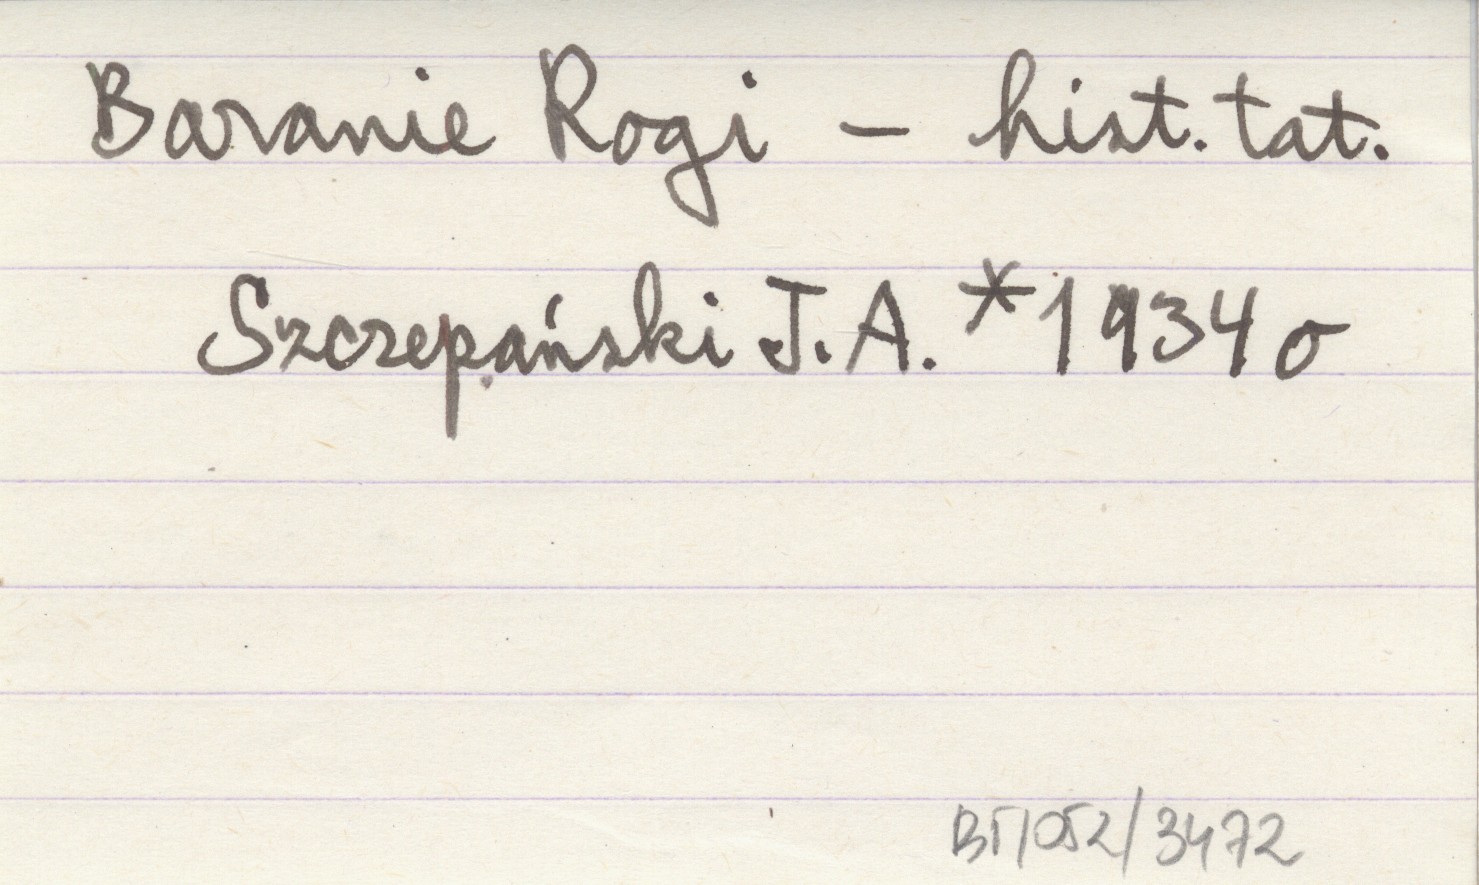 Baranie Rogi – hist. tat.
Szczepański J.A. *1934 o
BT/052/3472